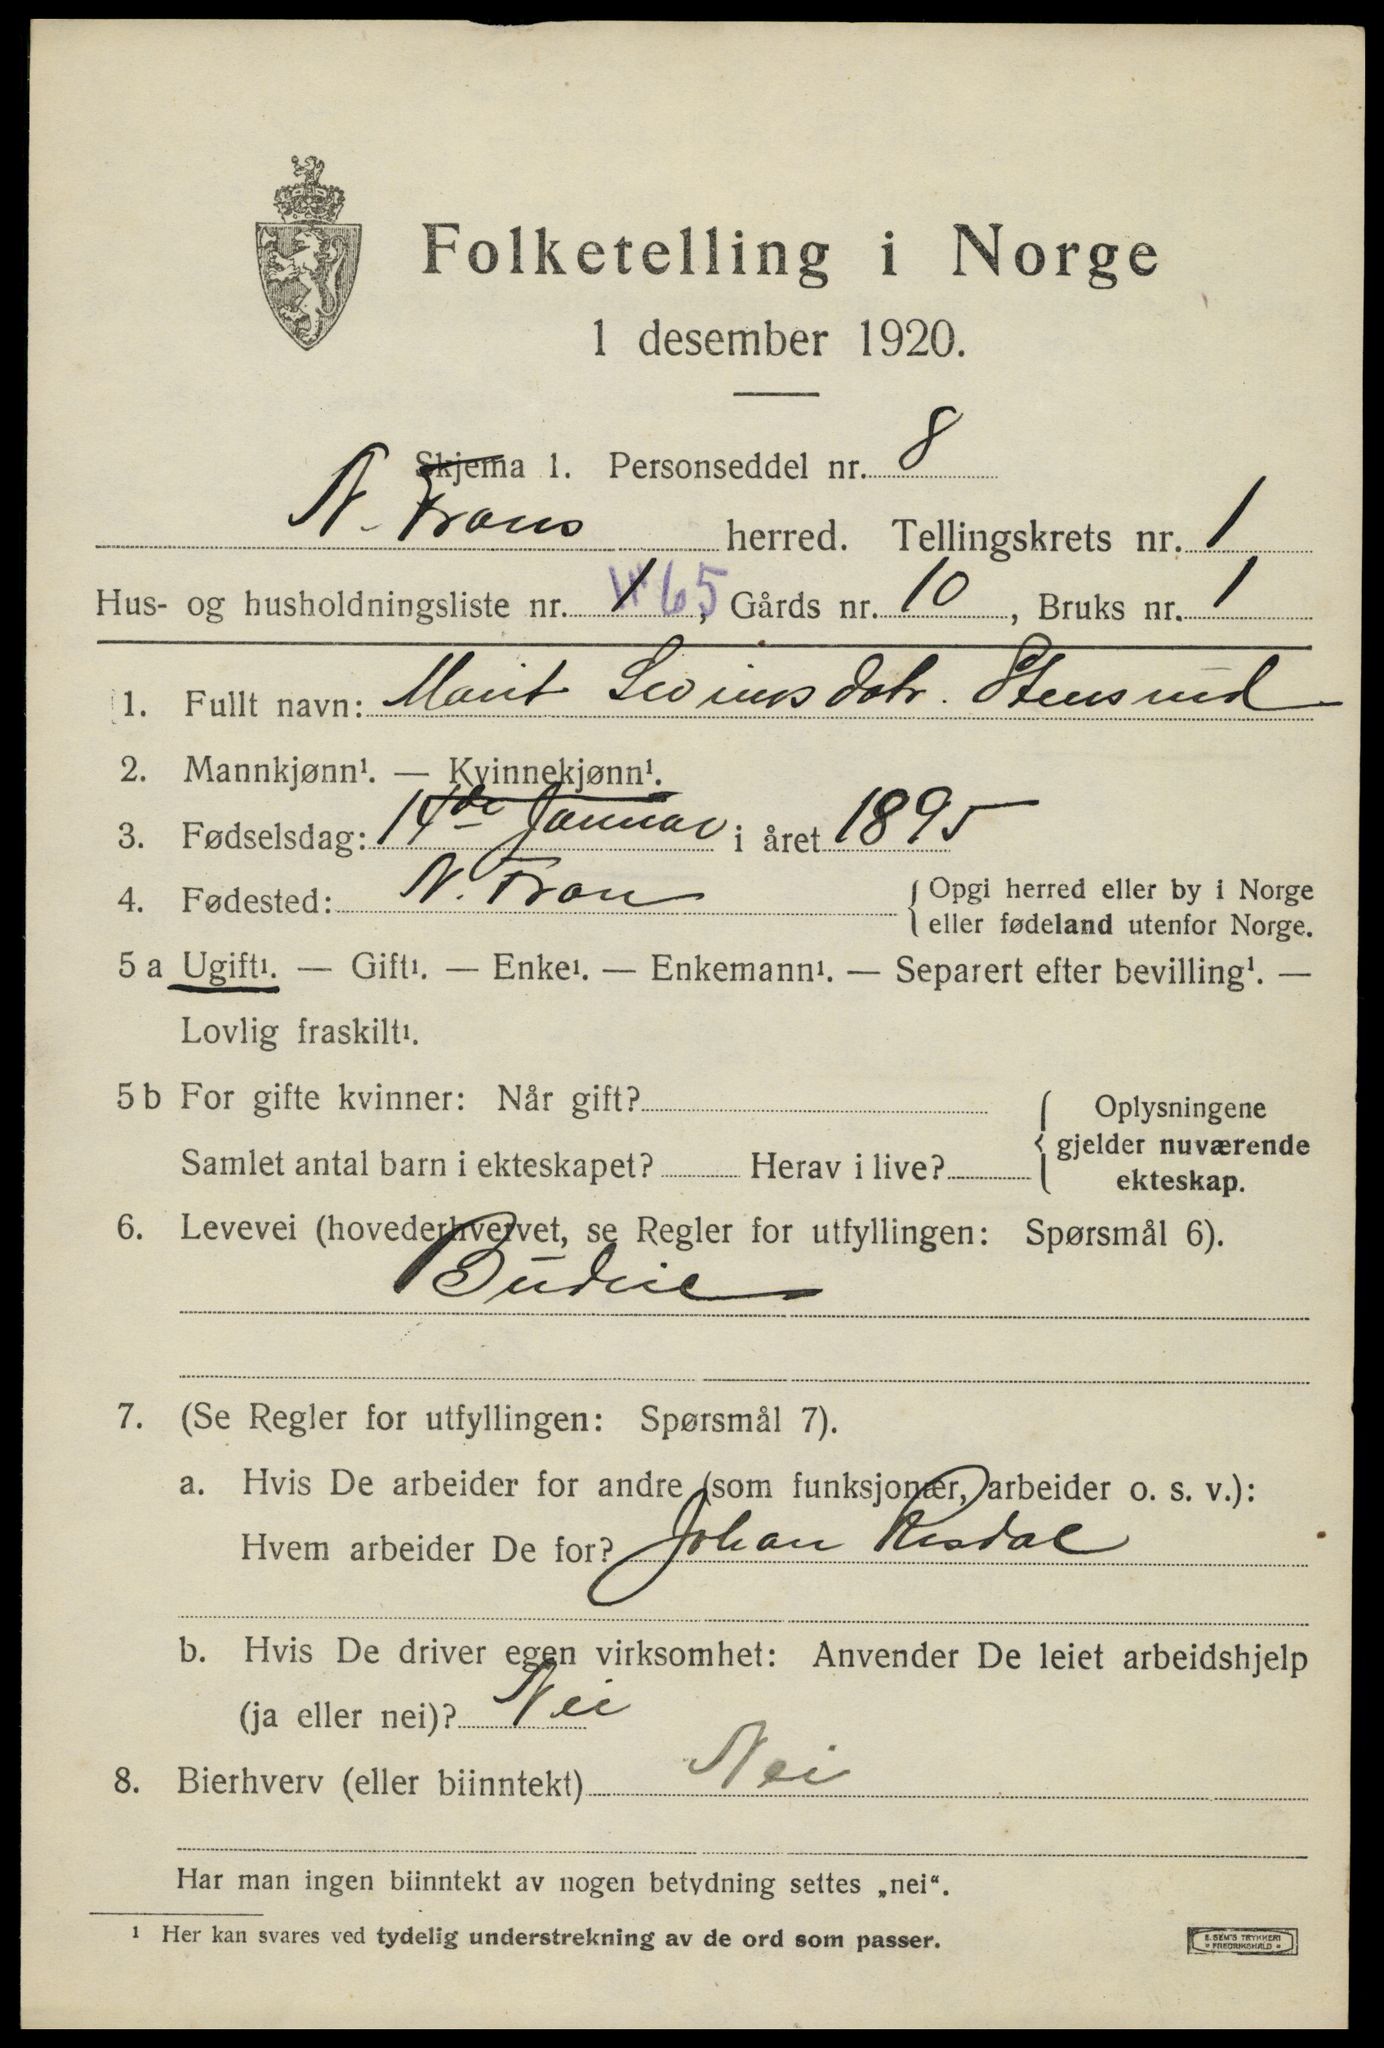 Folketelling i Norge
1 desember 1920.
Skjema 1. Personseddel nr. 8
N. Frons herred. Tellingskrets nr. 1
Hus- og husholdningsliste nr. 1 65, Gårds nr. 10, Bruks nr. 1
1. Fullt navn: Marit Sivinsdatr. Stensrud
2. Mannkjønn¹. — Kvinnekjønn¹.
3. Fødselsdag: 14de Januar i året 1895
4. Fødested: N. Fron { Opgi herred eller by i Norge
eller fødeland utenfor Norge.
5 a Ugift¹. — Gift¹. — Enke¹. — Enkemann¹. — Separert efter bevilling¹. —
Lovlig fraskilt¹.
5 b For gifte kvinner: Når gift? { Oplysningene
gjelder nuværende
Samlet antal barn i ekteskapet? Herav i live?
ekteskap.
6. Levevei (hovederhvervet, se Regler for utfyllingen: Spørsmål 6).
Budeie
7. (Se Regler for utfyllingen: Spørsmål 7).
a. Hvis De arbeider for andre (som funksjonær, arbeider o. s. v.):
Hvem arbeider De for? Johan
b. Hvis De driver egen virksomhet: Anvender De leiet arbeidshjelp
(ja eller nei)? Nei
8. Bierhverv (eller biinntekt) Nei
Har man ingen biinntekt av nogen betydning settes „nei“.
¹ Her kan svares ved tydelig understrekning av de ord som passer.
E. SEM'S TRYKKERI
FREDRIKSHALD